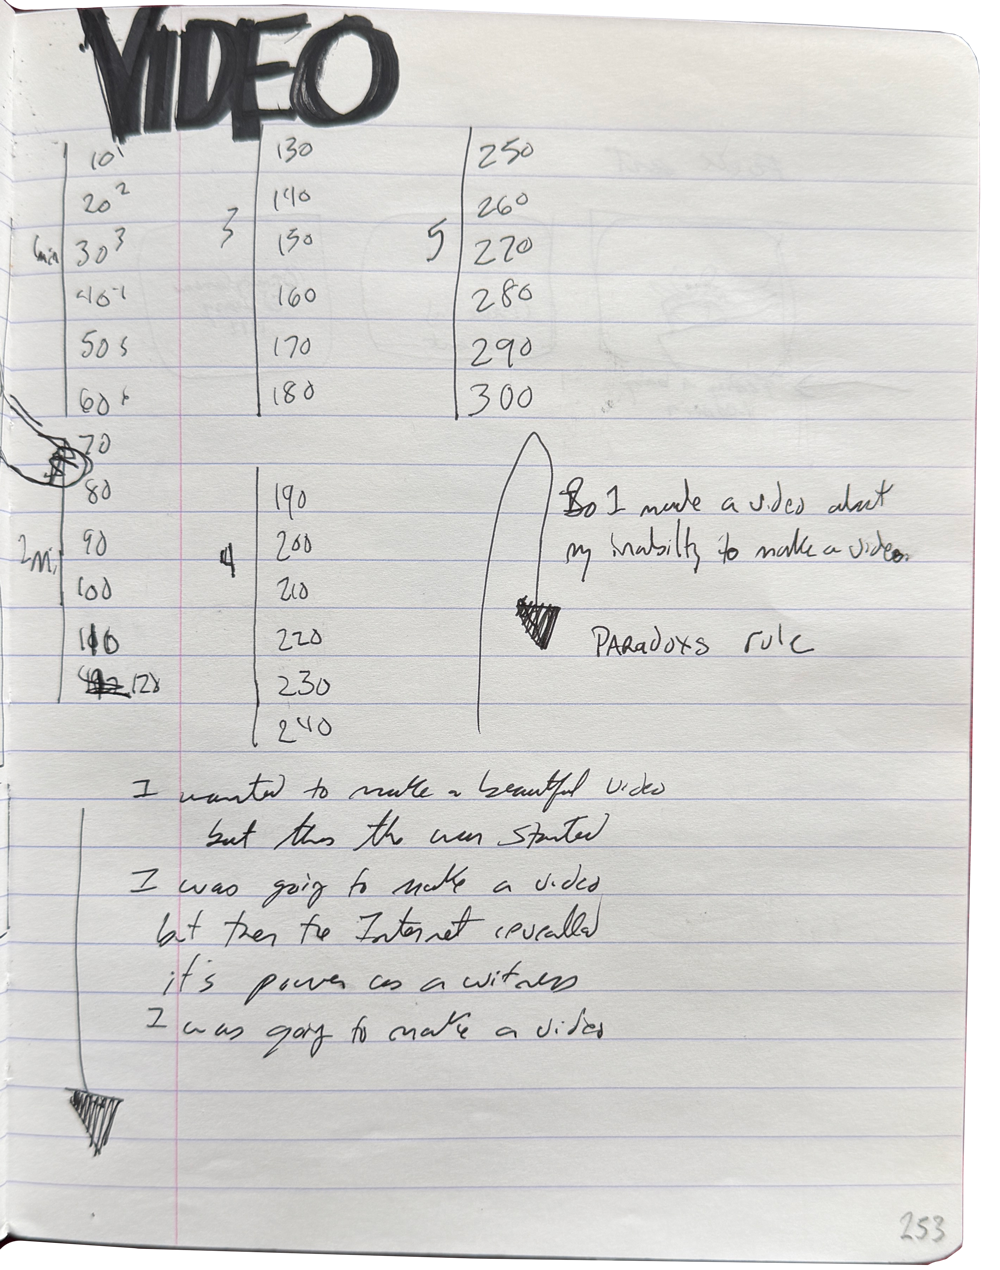 VIDEO
10 1
20 2
30 3
40 4
50 5
60 6
70
80
2 mi
90
100
110
120
3
130
140
150
160
170
180
4
190
200
210
220
230
240
5
250
260
270
280
290
300
So I made a video about
my inability to make a video.
PARADOXS rule
I wanted to make a beautiful video
but then the war started
I was going to make a video
but then the Internet revealed
it's power as a witness
I was going to make a video
253